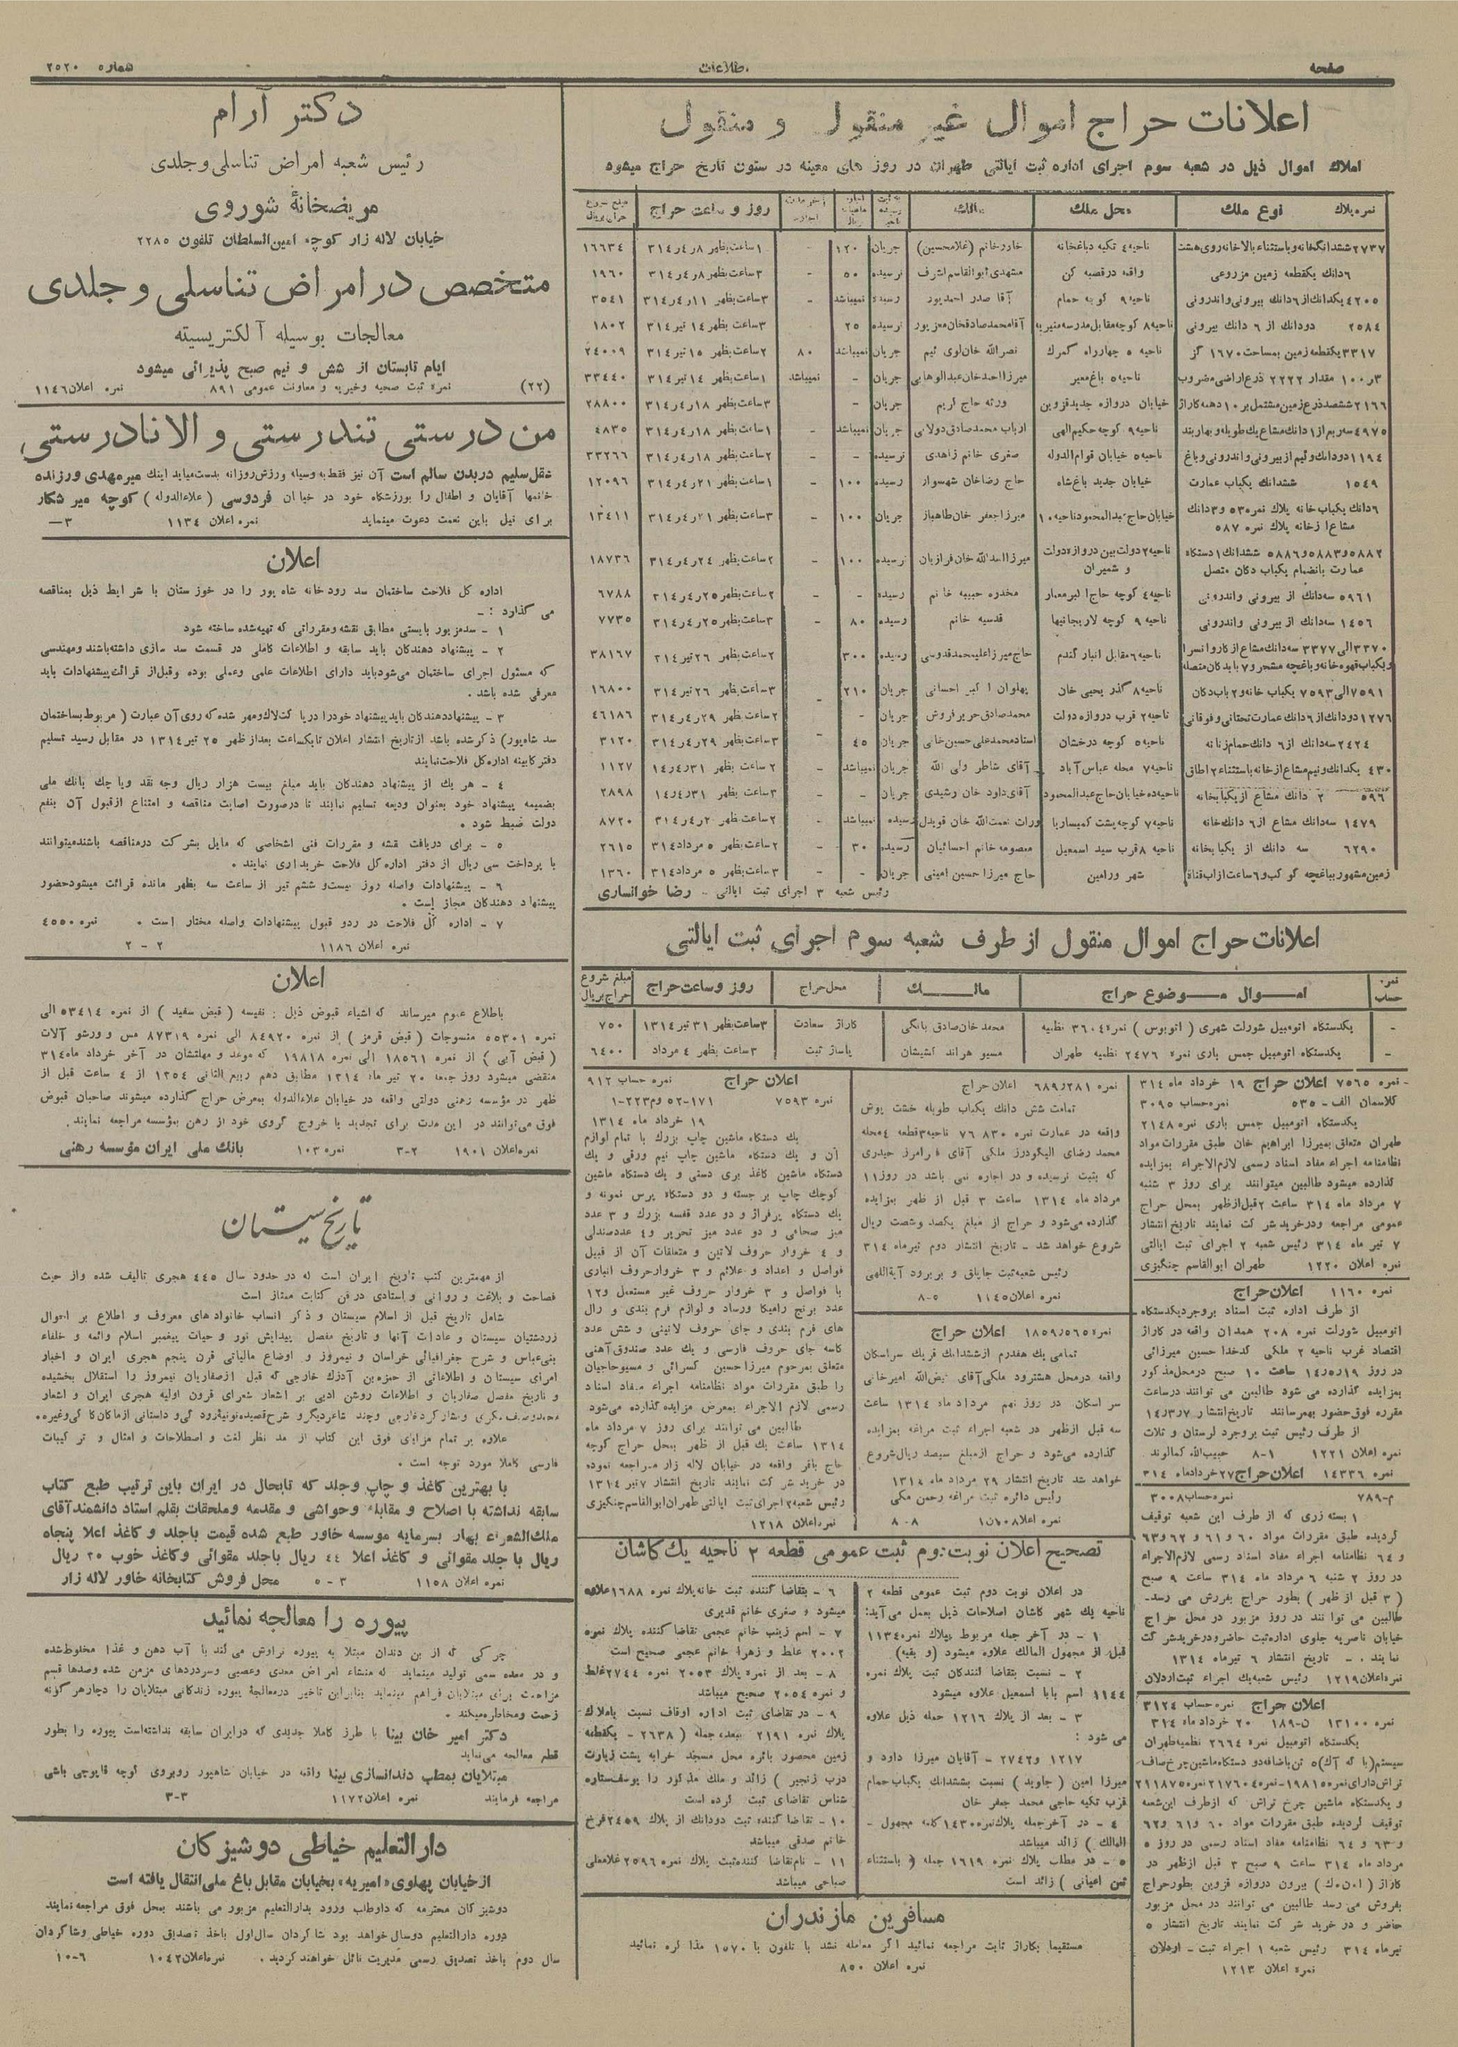 صفحه
اطلاعات
شماره ۲۵۲۰
اعلانات حراج اموال غیر منقول و منقول
املاک اموال ذیل در شعبه سوم اجرای اداره ثبت ایالتی طهران در روز های معینه در ستون تاریخ حراج میشود
نمره پلاک نوع ملک محل ملک مالک روز و ساعت حراج
۲۷۳۷ ششدانگ خانه و باستثناء بالاخانه روی هشت ناحیه ۴ تکیه دباغخانه خاور خانم (غلامحسین) جریان ۱۲۰ - ۱ ساعت بظهر ۳۱۴ر۴ر۸ ۱۶۶۳۴
۶ دانگ یکقطعه زمین مزروعی واقعه در قصبه کن مشهدی ابوالقاسم اشرف نرسیده ۵۰ - ۳ ساعت بظهر ۳۱۴ر۴ر۸ ۱۹۶۰
۴۲۰۵ یکدانگ از ۶ دانگ بیرونی و اندرونی ناحیه ۹ کوچه حمام آقا صدر احمدپور رسیده نمیباشد - ۳ ساعت بظهر ۳۱۴ر۴ر۱۱ ۳۵۴۱
۲۵۸۴ دودانگ از ۶ دانگ بیرونی ناحیه ۸ کوچه مقابل مدرسه منیریه آقا محمد صادق خان معزپور نرسیده ۲۵ ۳ ساعت بظهر ۱۴ تیر ۳۱۴ ۱۸۰۲
۳۳۱۷ یکقطعه زمین بمساحت ۱۶۷۰ گز ناحیه ۵ چهارراه گمرک نصرالله خان لوی ئیم جریان نمیباشد ۸۰ ۲ ساعت بظهر ۱۵ تیر ۳۱۴ ۲۴۰۰۹
۳ر۱۰۰ مقدار ۲۲۲۲ ذرع اراضی مضروب ناحیه ۵ باغ معیر میرزا احمد خان عبدالوهابی جریان - نمیباشد ۱ ساعت بظهر ۱۴ تیر ۳۱۴ ۳۳۴۴۰
۲۱۶۶ ششصد ذرع زمین مشتمل بر ۱۰ دهنه گاراژ خیابان دروازه جدید قزوین ورثه حاج کریم جریان - - ۳ ساعت بظهر ۳۱۴ر۴ر۱۸ ۲۸۸۰۰
۴۹۷۵ سه ربع از ۱ دانگ مشاع یک طویله و بهاربند ناحیه ۹ کوچه حکیم الهی ارباب محمد صادق دولابی جریان نمیباشد - ۱ ساعت بظهر ۳۱۴ر۴ر۱۸ ۴۸۳۵
۱۱۹۴ دودانگ و نیم از بیرونی و اندرونی و باغ ناحیه ۵ خیابان قوام الدوله صغری خانم زاهدی نرسیده - - ۲ ساعت بظهر ۳۱۴ر۴ر۱۸ ۳۳۲۶۶
۱۵۴۹ ششدانگ یکباب عمارت خیابان جدید باغشاه حاج رضا خان شهسوار رسیده ۱۰۰ - ۱ ساعت بظهر ۳۱۴ر۴ر۲۱ ۱۲۰۹۶
۶ دانگ یکباب خانه پلاک نمره ۵۳ و ۳ دانگ مشاع از خانه پلاک نمره ۵۸۷ خیابان حاج عبدالمحمود ناحیه ۱۰ میرزا جعفر خان طاهباز جریان ۱۰۰ - ۳ ساعت بظهر ۳۱۴ر۴ر۲۱ ۱۳۴۱۱
۵۸۸۲ و ۵۸۸۳ و ۵۸۸۶ ششدانگ ۱ دستگاه عمارت بانضمام یکباب دکان متصل ناحیه ۲ دولت بین دروازه دولت و شمیران میرزا اسدالله خان فرازیان نرسیده ۱۰۰ - ۲ ساعت بظهر ۳۱۴ر۴ر۲۴ ۱۸۷۳۶
۵۹۶۱ سه دانگ از بیرونی و اندرونی ناحیه ۴ کوچه حاج اکبر معمار مخدره حبیبه خانم رسیده - - ۲ ساعت بظهر ۳۱۴ر۴ر۲۵ ۶۷۸۸
۱۴۵۶ سه دانگ از بیرونی و اندرونی ناحیه ۹ کوچه لاریجانیها قدسیه خانم رسیده ۸۰ - ۳ ساعت بظهر ۳۱۴ر۴ر۲۵ ۷۷۳۵
۳۳۷۰ الی ۳۳۷۷ سه دانگ مشاع از کاروانسرا و یکباب قهوه خانه و باغچه مشجر و ۷ باب دکان متصله ناحیه ۶ مقابل انبار گندم حاج میرزا علیمحمد قدوسی رسیده ۳۰۰ ۲ ساعت بظهر ۲۶ تیر ۳۱۴ ۳۸۱۶۷
۷۵۹۱ الی ۷۵۹۳ یکباب خانه و ۲ باب دکان ناحیه ۸ گذر یحیی خان پهلوان اکبر احسانی جریان ۲۱۰ - ۳ ساعت بظهر ۲۶ تیر ۳۱۴ ۱۶۸۰۰
۱۲۷۶ دودانگ از ۶ دانگ عمارت تحتانی و فوقانی ناحیه ۲ قرب دروازه دولت محمد صادق حریرفروش جریان - ۲ ساعت بظهر ۳۱۴ر۴ر۲۹ ۴۶۱۸۶
۲۴۲۴ سه دانگ از ۶ دانگ حمام زنانه ناحیه ۵ کوچه درخشان استاد محمد علی حسین خانی جریان ۴۵ - ۳ ساعت بظهر ۳۱۴ر۴ر۲۹ ۳۱۲۰
۴۳۰ یکدانگ و نیم مشاع از خانه باستثناء ۲ اطاق ناحیه ۷ محله عباس آباد آقای شاطر ولی الله جریان نمیباشد - ۲ ساعت بظهر ۱۴ر۴ر۳۱ ۱۱۲۷
۵۹۶ ۲ دانگ مشاع از یکبابخانه ناحیه ده خیابان حاج عبدالمحمود آقای داود خان رشیدی جریان - - ۳ ساعت بظهر ۱۴ر۴ر۳۱ ۲۸۹۸
۱۴۷۹ سه دانگ مشاع از ۶ دانگ خانه ناحیه ۷ کوچه پشت کمیساریا وراث نعمت الله خان قویدل رسیده نمیباشد - ۲ ساعت بظهر ۳۱۴ر۴ر۲ ۸۷۲۰
۶۲۹۰ سه دانگ از یکبابخانه ناحیه ۸ قرب سید اسمعیل معصومه خانم احسائیان رسیده ۳۰ - ۲ ساعت بظهر ۵ مرداد ۳۱۴ ۲۶۱۵
زمین مشهور بباغچه گوکب و ۶ ساعت از آب قنات شهر ورامین حاج میرزا حسین امینی جریان - - ۳ ساعت بظهر ۵ مرداد ۳۱۴ ۱۳۶۰
رئیس شعبه ۳ اجرای ثبت ایالتی - رضا خوانساری
اعلانات حراج اموال منقول از طرف شعبه سوم اجرای ثبت ایالتی
نمره حساب اموال موضوع حراج مالک محل حراج روز و ساعت حراج مبلغ شروع حراج بریال
- یکدستگاه اتومبیل شورلت شهری (اتوبوس) نمره ۳۶۰۴ نظمیه محمد خان صادق بانگی گاراژ سعادت ۳ ساعت بظهر ۳۱ تیر ۱۳۱۴ ۷۵۰
- یکدستگاه اتومبیل جمس باری نمره ۲۴۷۶ نظمیه طهران مسیو هراند کشیشان پاساژ ثبت ۳ ساعت بظهر ۴ مرداد ۶۴۰۰
نمره ۷۵۶۵ اعلان حراج ۱۹ خرداد ماه ۳۱۴
کلاسمان الف - ۵۳۵ نمره حساب ۳۰۹۵
یکدستگاه اتومبیل جمس باری نمره ۲۱۴۸
طهران متعلق بمیرزا ابراهیم خان طبق مقررات مواد
نظامنامه اجراء مفاد اسناد رسمی لازم الاجراء بمزایده
گذارده میشود طالبین میتوانند برای روز ۳ شنبه
۷ مرداد ماه ۳۱۴ ساعت ۲ قبل از ظهر بمحل حراج
عمومی مراجعه و در خرید شرکت نمایند تاریخ انتشار
۷ تیر ماه ۳۱۴ رئیس شعبه ۲ اجرای ثبت ایالتی
نمره اعلان ۱۲۲۰ طهران ابوالقاسم چنگیزی
نمره ۱۱۶۰ اعلان حراج
از طرف اداره ثبت اسناد بروجرد یکدستگاه
اتومبیل شورلت نمره ۲۰۸ همدان واقعه در گاراژ
اقتصاد غرب ناحیه ۲ ملکی کدخدا حسین میرزائی
در روز ۱۹ر۵ر۱۴ ساعت ۱۰ صبح در محل مذکور
بمزایده گذارده می شود طالبین می توانند در ساعت
مقرره فوق حضور بهمرسانند تاریخ انتشار ۱۴ر۳ر۷
از طرف رئیس ثبت بروجرد لرستان و ثلاث
نمره اعلان ۱۲۲۱ ۸-۱ حبیب الله کمالوند
نمره ۱۴۳۳۶ اعلان حراج ۲۷ خرداد ماه ۳۱۴
م-۷۸۹ نمره حساب ۳۰۰۸
۱ بسته زری که از طرف این شعبه توقیف
گردیده طبق مقررات مواد ۶۰ و ۶۱ و ۶۲ و ۶۳
و ۶۴ نظامنامه اجراء مفاد اسناد رسمی لازم الاجراء
در روز ۲ شنبه ۶ مرداد ماه ۳۱۴ ساعت ۹ صبح
(۳ قبل از ظهر) بطور حراج بفروش می رسد-
طالبین می توانند در روز مزبور در محل حراج
خیابان ناصریه جلوی اداره ثبت حاضر و در خرید شرکت
نمایند. - تاریخ انتشار ۶ تیر ماه ۱۳۱۴
نمره اعلان ۱۲۱۹ رئیس شعبه یک اجراء ثبت اردلان
اعلان حراج نمره حساب ۳۱۲۴
نمره ۱۳۱۰۰ ن-۱۸۹ ۲۰ خرداد ماه ۳۱۴
یکدستگاه اتومبیل نمره ۲۶۶۴ نظمیه طهران
سیستم (با که آک) ۵ تن باضافه دو دستگاه ماشین چرخ صاف
تراش دارای نمره ۱۹۸۱۵-نمره ۲۱۷۶۰۴ نمره ۲۱۱۸۷۵
و یکدستگاه ماشین چرخ تراش که از طرف این شعبه
توقیف گردیده طبق مقررات مواد ۶۰ و ۶۱ و ۶۲
و ۶۳ و ۶۴ نظامنامه مفاد اسناد رسمی در روز ۵
مرداد ماه ۳۱۴ ساعت ۹ صبح ۳ قبل از ظهر در
گاراژ (ا.ن.ک) بیرون دروازه قزوین بطور حراج
بفروش می رسد طالبین می توانند در محل مزبور
حاضر و در خرید شرکت نمایند تاریخ انتشار ۵
تیر ماه ۳۱۴ رئیس شعبه ۱ اجراء ثبت - اردلان
نمره اعلان ۱۲۱۳
نمره ۲۸۱ر۶۸۹ اعلان حراج
تمامت شش دانگ یکباب طویله خشت پوش
واقعه در عمارت نمره ۸۳۰ ۷۶ ناحیه ۳ قطعه ۴ محله
محمد رضای الیگودرز ملکی آقای فرامرز حیدری
که بثبت نرسیده و در اجاره نمی باشد در روز ۱۱
مرداد ماه ۱۳۱۴ ساعت ۳ قبل از ظهر بمزایده
گذارده می شود و حراج از مبلغ یکصد و شصت ریال
شروع خواهد شد - تاریخ انتشار دوم تیر ماه ۳۱۴
رئیس شعبه ثبت جاپلق و بربرود آیة اللهی
نمره اعلان ۱۱۴۵ ۸-۵
نمره ۵۶۵ر۱۸۵۹ اعلان حراج
تمامی یک هفدرم از ششدانگ قریه سراسکان
واقعه در محل هشترود ملکی آقای فیض الله امیرخانی
سر اسکان در روز نهم مرداد ماه ۱۳۱۴ ساعت
سه قبل از ظهر در شعبه اجراء ثبت مراغه بمزایده
گذارده می شود و حراج از مبلغ سیصد ریال شروع
خواهد شد تاریخ انتشار ۲۹ خرداد ماه ۱۳۱۴
رئیس دائره ثبت مراغه رحمن مکی
نمره اعلان ۱۰۰۸ ۸-۸
اعلان حراج نمره حساب ۹۱۲
نمره ۷۵۹۳ ۱۷۱-۵۲ و م ۲۲۳-۱
۱۹ خرداد ماه ۱۳۱۴
یک دستگاه ماشین چاپ بزرگ با تمام لوازم
آن و یک دستگاه ماشین چاپ نیم ورقی و یک
دستگاه ماشین کاغذ بری دستی و یک دستگاه ماشین
کوچک چاپ برجسته و دو دستگاه پرس نمونه و
یک دستگاه پرفراژ و دو عدد قفسه بزرگ و ۳ عدد
میز صحافی و دو عدد میز تحریر و ۴ عدد صندلی
و ۴ خروار حروف لاتین و متعلقات آن از قبیل
فواصل و اعداد و علائم و ۳ خروار حروف انباری
با فواصل و ۳ خروار حروف غیر مستعمل و ۱۲
عدد برنج رامکا ورساد و لوازم فرم بندی و رال
های فرم بندی و جای حروف لاتینی و شش عدد
کاسه جای حروف فارسی و یک عدد صندوق آهنی
متعلق بمرحوم میرزا حسین کسرائی و مسیو حاجیان
را طبق مقررات مواد نظامنامه اجراء مفاد اسناد
رسمی لازم الاجراء بمعرض مزایده گذارده می شود
طالبین می توانند برای روز ۷ مرداد ماه
۱۳۱۴ ساعت یک قبل از ظهر بمحل حراج کوچه
حاج باقر واقعه در خیابان لاله زار مراجعه نموده
در خرید شرکت نمایند تاریخ انتشار ۷ تیر ۱۳۱۴
رئیس شعبه ۲ اجرای ثبت ایالتی طهران ابوالقاسم چنگیزی
نمره اعلان ۱۲۱۸
تصحیح اعلان نوبت دوم ثبت عمومی قطعه ۲ ناحیه یک کاشان
در اعلان نوبت دوم ثبت عمومی قطعه ۲
ناحیه یک شهر کاشان اصلاحات ذیل بعمل می آید:
۱ - در آخر جمله مربوط بپلاک نمره ۱۱۳۴
قبل از مجهول المالک علاوه میشود (و بقیه)
۲ - نسبت بتقاضا کنندگان ثبت پلاک نمره
۱۱۴۴ اسم بابا اسمعیل علاوه میشود
۳ - بعد از پلاک ۱۲۱۶ جمله ذیل علاوه
می شود:
۱۲۱۷ و ۲۷۴۲ - آقایان میرزا داود و
میرزا امین (جاوید) نسبت بششدانگ یکباب حمام
قرب تکیه حاجی محمد جعفر خان
۴ - در آخر جمله پلاک نمره ۱۴۳۰۰ کلمه مجهول -
المالک) زائد میباشد
۵ - در مطلب پلاک نمره ۱۶۱۹ جمله (باستثناء
ثمن اعیانی) زائد است
۶ - بتقاضا کننده ثبت خانه پلاک نمره ۱۶۸۸ علاوه
میشود و صغری خانم قدیری
۷ - اسم زینب خانم عجمی تقاضا کننده پلاک نمره
۲۰۰۲ غلط و زهرا خانم عجمی صحیح است
۸ - بعد از نمره پلاک ۲۰۵۳ نمره ۲۷۴۴ غلط
و نمره ۲۰۵۴ صحیح میباشد
۹ - در تقاضای ثبت اداره اوقاف نسبت باملاک
پلاک نمره ۲۱۹۱ ببعد، جمله (۲۶۳۸ - یکقطعه
زمین محصور بائره محل مسجد خرابه پشت زیارت
درب زنجیر) زائد و ملک مذکور را یوسف ستاره
شناس تقاضای ثبت کرده است
۱۰ - تقاضا کننده ثبت دودانگ از پلاک ۲۴۵۹ فرخ
خانم صدقی میباشد
۱۱ - نام تقاضا کننده ثبت پلاک نمره ۲۵۹۶ غلامعلی
صباحی میباشد
مسافرین مازندران
مستقیما بگاراژ ثابت مراجعه نمائید اگر معامله نشد با تلفون با ۱۵۷۰ مذاکره نمائید
نمره اعلان ۸۵۰
دکتر آرام
رئیس شعبه امراض تناسلی و جلدی
مریضخانهٔ شوروی
خیابان لاله زار کوچه امین السلطان تلفون ۲۲۸۵
متخصص در امراض تناسلی و جلدی
معالجات بوسیله آلکتریسیته
ایام تابستان از شش و نیم صبح پذیرائی میشود
(۲۲) نمره ثبت صحیه و خیریه و معاونت عمومی ۸۹۱ نمره اعلان ۱۱۴۶
من درستی تندرستی و الا نادرستی
عقل سلیم در بدن سالم است آن نیز فقط بوسیله ورزش روزانه بدست میاید اینک میرمهدی ورزنده
خانمها آقایان و اطفال را بورزشگاه خود در خیابان فردوسی (علاءالدوله) کوچه میر شکار
برای نیل باین نعمت دعوت مینماید نمره اعلان ۱۱۳۴ ۳-
اعلان
اداره کل فلاحت ساختمان سد رودخانه شاه پور را در خوزستان با شرایط ذیل بمناقصه
می گذارد: -
۱ - سد مزبور بایستی مطابق نقشه و مقرراتی که تهیه شده ساخته شود
۲ - پیشنهاد دهندگان باید سابقه و اطلاعات کاملی در قسمت سد سازی داشته باشند و مهندسی
که مسئول اجرای ساختمان می شود باید دارای اطلاعات علمی و عملی بوده و قبل از قرائت پیشنهادات باید
معرفی شده باشد.
۳ - پیشنهاد دهندگان باید پیشنهاد خود را در پاکت لاک و مهر شده که روی آن عبارت (مربوط بساختمان
سد شاه پور) ذکر شده باشد از تاریخ انتشار اعلان تا یکساعت بعد از ظهر ۲۵ تیر ۱۳۱۴ در مقابل رسید تسلیم
دفتر کابینه اداره کل فلاحت نمایند
۴ - هر یک از پیشنهاد دهندگان باید مبلغ بیست هزار ریال وجه نقد و یا چک بانک ملی
بضمیمه پیشنهاد خود بعنوان ودیعه تسلیم نمایند تا در صورت اصابت مناقصه و امتناع از قبول آن بنفع
دولت ضبط شود.
۵ - برای دریافت نقشه و مقررات فنی اشخاصی که مایل بشرکت در مناقصه باشند میتوانند
با پرداخت سی ریال از دفتر اداره کل فلاحت خریداری نمایند.
۶ - پیشنهادات واصله روز بیست و ششم تیر از ساعت سه بظهر مانده قرائت میشود حضور
پیشنهاد دهندگان مجاز است.
۷ - اداره کل فلاحت در رد و قبول پیشنهادات واصله مختار است. نمره ۴۵۵۰
نمره اعلان ۱۱۸۶ ۲ - ۲
اعلان
باطلاع عموم میرساند که اشیاء قبوض ذیل: نفیسه (قبض سفید) از نمره ۵۳۴۱۴ الی
۵۵۳۰۱ منسوجات (قبض قرمز) از نمره ۸۴۹۲۰ الی نمره ۸۷۳۱۹ مس و ورشو آلات
(قبض آبی) از نمره ۱۸۵۶۱ الی نمره ۱۹۸۱۸ که موعد و مهلتشان در آخر خرداد ماه ۳۱۴
منقضی میشود روز جمعه ۲۰ تیر ماه ۱۳۱۴ مطابق دهم ربیع الثانی ۱۳۵۴ از ۴ ساعت قبل از
ظهر در مؤسسه رهنی دولتی واقعه در خیابان علاءالدوله بمعرض حراج گذارده میشوند صاحبان قبوض
فوق می توانند در این مدت برای تجدید یا خروج گروی خود از رهن بمؤسسه مراجعه نمایند.
نمره اعلان ۱۹۰۱ ۳-۲ نمره ۱۰۳ بانک ملی ایران مؤسسه رهنی
تاریخ سیستان
از مهمترین کتب تاریخ ایران است که در حدود سال ۴۴۵ هجری تالیف شده و از حیث
فصاحت و بلاغت و روانی و استادی در فن کتابت ممتاز است
شامل تاریخ قبل از اسلام سیستان و ذکر انساب خانوادهای معروف و اطلاع بر احوال
زردشتیان سیستان و عادات آنها و تاریخ مفصل پیدایش نور و حیات پیغمبر اسلام و ائمه و خلفاء
بنی عباس و شرح جغرافیائی خراسان و نیمروز و اوضاع مالیاتی قرن پنجم هجری ایران و اخبار
امرای سیستان و اطلاعاتی از حمزة بن آذرک خارجی که قبل از صفاریان نیمروز را استقلال بخشیده
و تاریخ مفصل صفاریان و اطلاعات روشن ادبی بر اشعار شعرای قرون اولیه هجری ایران و اشعار
محمد وصیف سگزی و بسام کرد خارجی و چند شاعر دیگر و شرح قصیده نونیه رودکی و داستانی از ماکان کاکی و غیره.
علاوه بر تمام مزایای فوق این کتاب از مد نظر لغت و اصطلاحات و امثال و ترکیبات
فارسی کاملا مورد توجه است.
با بهترین کاغذ و چاپ و جلد که تابحال در ایران باین ترتیب طبع کتاب
سابقه نداشته با اصلاح و مقابله و حواشی و مقدمه و ملحقات بقلم استاد دانشمند آقای
ملک الشعراء بهار بسرمایه موسسه خاور طبع شده قیمت با جلد و کاغذ اعلا پنجاه
ریال با جلد مقوائی و کاغذ اعلا ۴۴ ریال با جلد مقوائی و کاغذ خوب ۳۵ ریال
نمره اعلان ۱۱۵۸ ۳ - ۵ محل فروش کتابخانه خاور لاله زار
پیوره را معالجه نمائید
چرکی که از بن دندان مبتلا به پیوره تراوش می کند با آب دهن و غذا مخلوط شده
و در معده سمی تولید مینماید که منشاء امراض معدی و عصبی و سردردهای مزمن شده و صدها قسم
مزاحمت برای مبتلایان فراهم مینماید بنابراین تاخیر در معالجهٔ پیوره زندگانی مبتلایان را دچار هرگونه
زحمت و مخاطره میکند.
دکتر امیر خان بینا با طرز کاملا جدیدی که در ایران سابقه نداشته است پیوره را بطور
قطع معالجه می نماید
مبتلایان بمطب دندانسازی بینا واقعه در خیابان شاهپور روبروی کوچه قاپوچی باشی
مراجعه فرمایند نمره اعلان ۱۱۷۲ ۳-۳
دارالتعلیم خیاطی دوشیزگان
از خیابان پهلوی «امیریه» بخیابان مقابل باغ ملی انتقال یافته است
دوشیزگان محترمه که داوطلب ورود بدارالتعلیم مزبور می باشند بمحل فوق مراجعه نمایند
دوره دارالتعلیم دو سال خواهد بود شاگردان سال اول باخذ تصدیق دوره خیاطی و شاگردان
سال دوم باخذ تصدیق رسمی مدیریت نائل خواهند گردید. نمره اعلان ۱۰۴۲ ۶-۱۰